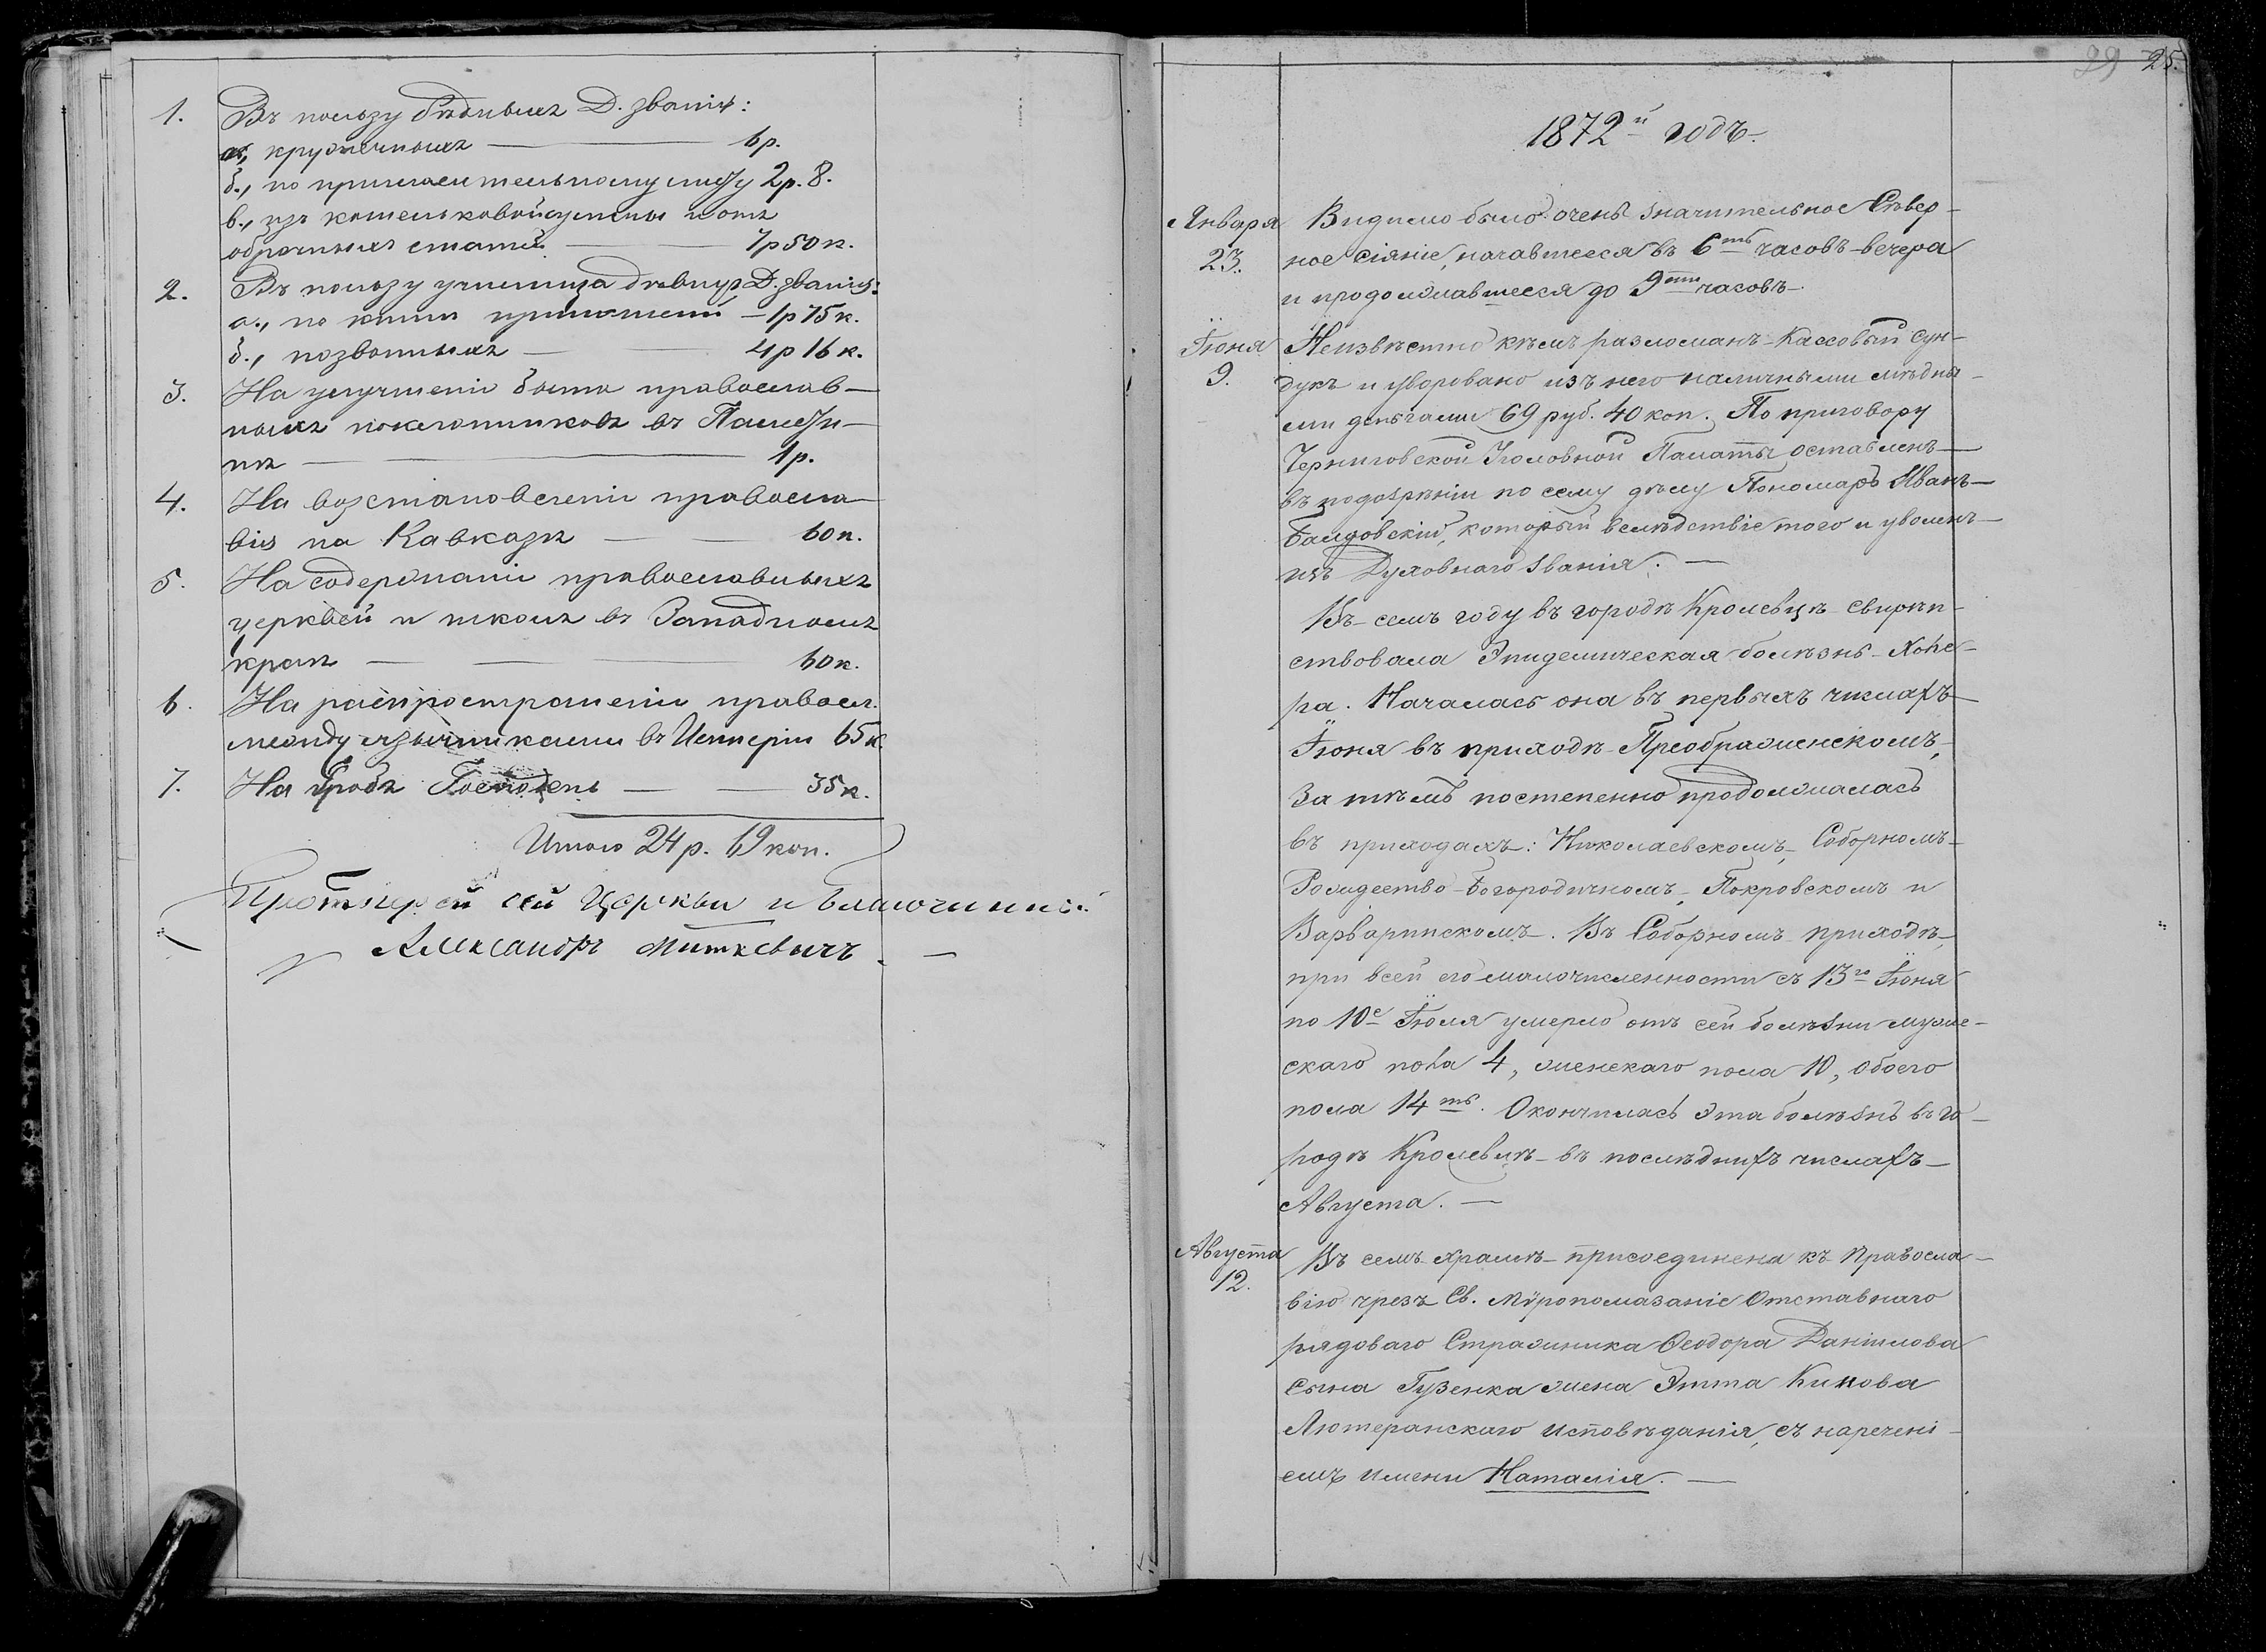 1. Въ пользу бѣдныхъ Д. званія:
а., кружечныхъ — 6 р.
б., по пригласительному листу 2 р. 8.
в., изъ кошельковой суммы и отъ
оброчныхъ статей — 7 р 50 к.
2. Въ пользу училища дѣвицъ Д. званія:
а., по книгѣ приношеній — 1 р 75 к.
б., позвонныхъ — 4 р 16 к.
3. На улучшеніе быта православ-
ныхъ поклонниковъ въ Палести-
нѣ — 1 р.
4. На возстановленіе правосла-
вія на Кавказѣ — 60 к.
5. На содержаніе православныхъ
церквей и школъ въ Западномъ
краѣ — 60 к.
6. На распространеніе правосл.
между язычниками въ Имперіи 65 к.
7. На Гробъ Господень — 35 к.
Итого 24 р. 19 коп.
Протоіерей сей Церкви и Благочинный
Александръ Миткевичъ. —
29 25.
1872й годъ.
Января Видимо было очень значительное Сѣвер-
23. ное сіяніе, начавшееся въ 6ть часовъ вечера
и продолжавшееся до 9ти часовъ.
Іюня Неизвѣстно кѣмъ разломанъ Кассовый сун-
9. дукъ и уворовано изъ него наличными мѣдны-
ми деньгами 69 руб. 40 коп. По приговору
Черниговской Уголовной Палаты оставленъ
въ подозрѣніи по сему дѣлу Пономарь Иванъ
Баидовскій, который вслѣдствіе того и уволенъ
изъ Духовнаго званія. —
Въ семъ году въ городѣ Кролевцѣ свирѣп-
ствовала Эпидемическая болѣзнь Холе-
ра. Началась она въ первыхъ числахъ
Іюня въ приходѣ Преображенскомъ,
За тѣмъ постепенно продолжалась
въ приходахъ: Николаевскомъ, Соборномъ
Рождество-Богородичномъ, Покровскомъ и
Варваринскомъ. Въ Соборномъ приходѣ,
при всей его малочисленности съ 13го Іюня
по 10е Іюля умерло отъ сей болѣзни муже-
скаго пола 4, женскаго пола 10, обоего
пола 14ть. Окончилась эта болѣзнь въ го-
родѣ Кролевцѣ въ послѣднихъ числахъ
Августа. —
Августа Въ семъ храмѣ присоединена къ Правосла-
12. вію чрезъ Св. Мѵропомазаніе Отставнаго
рядоваго Стражника Ѳеодора Даніилова
сына Гузенка жена Этта Кинова
Лютеранскаго исповѣданія, съ наречені-
емъ имени Наталія. —